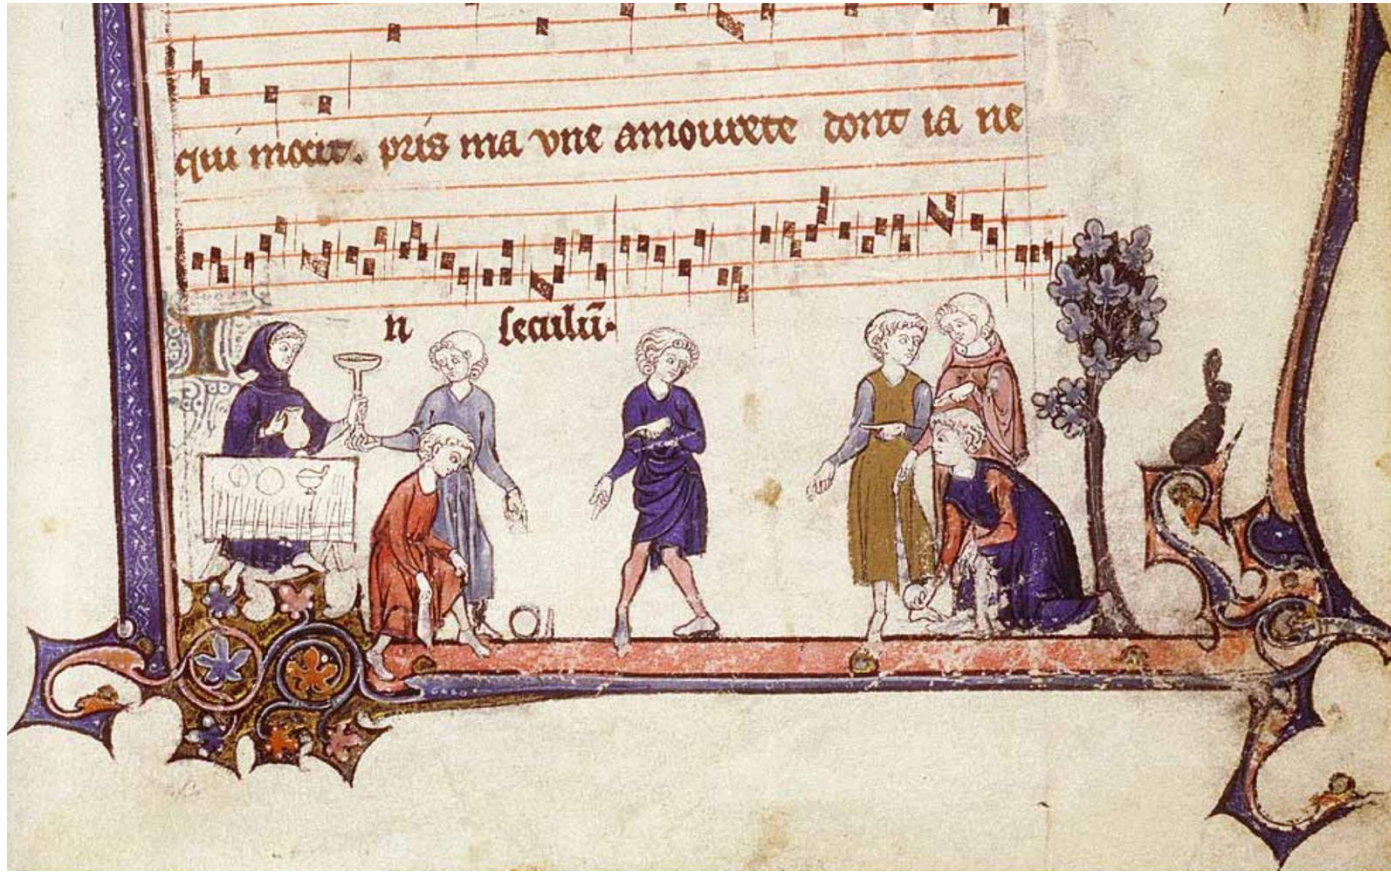 qui mocit. pris ma vne amourete dont ia ne
I n seculū.